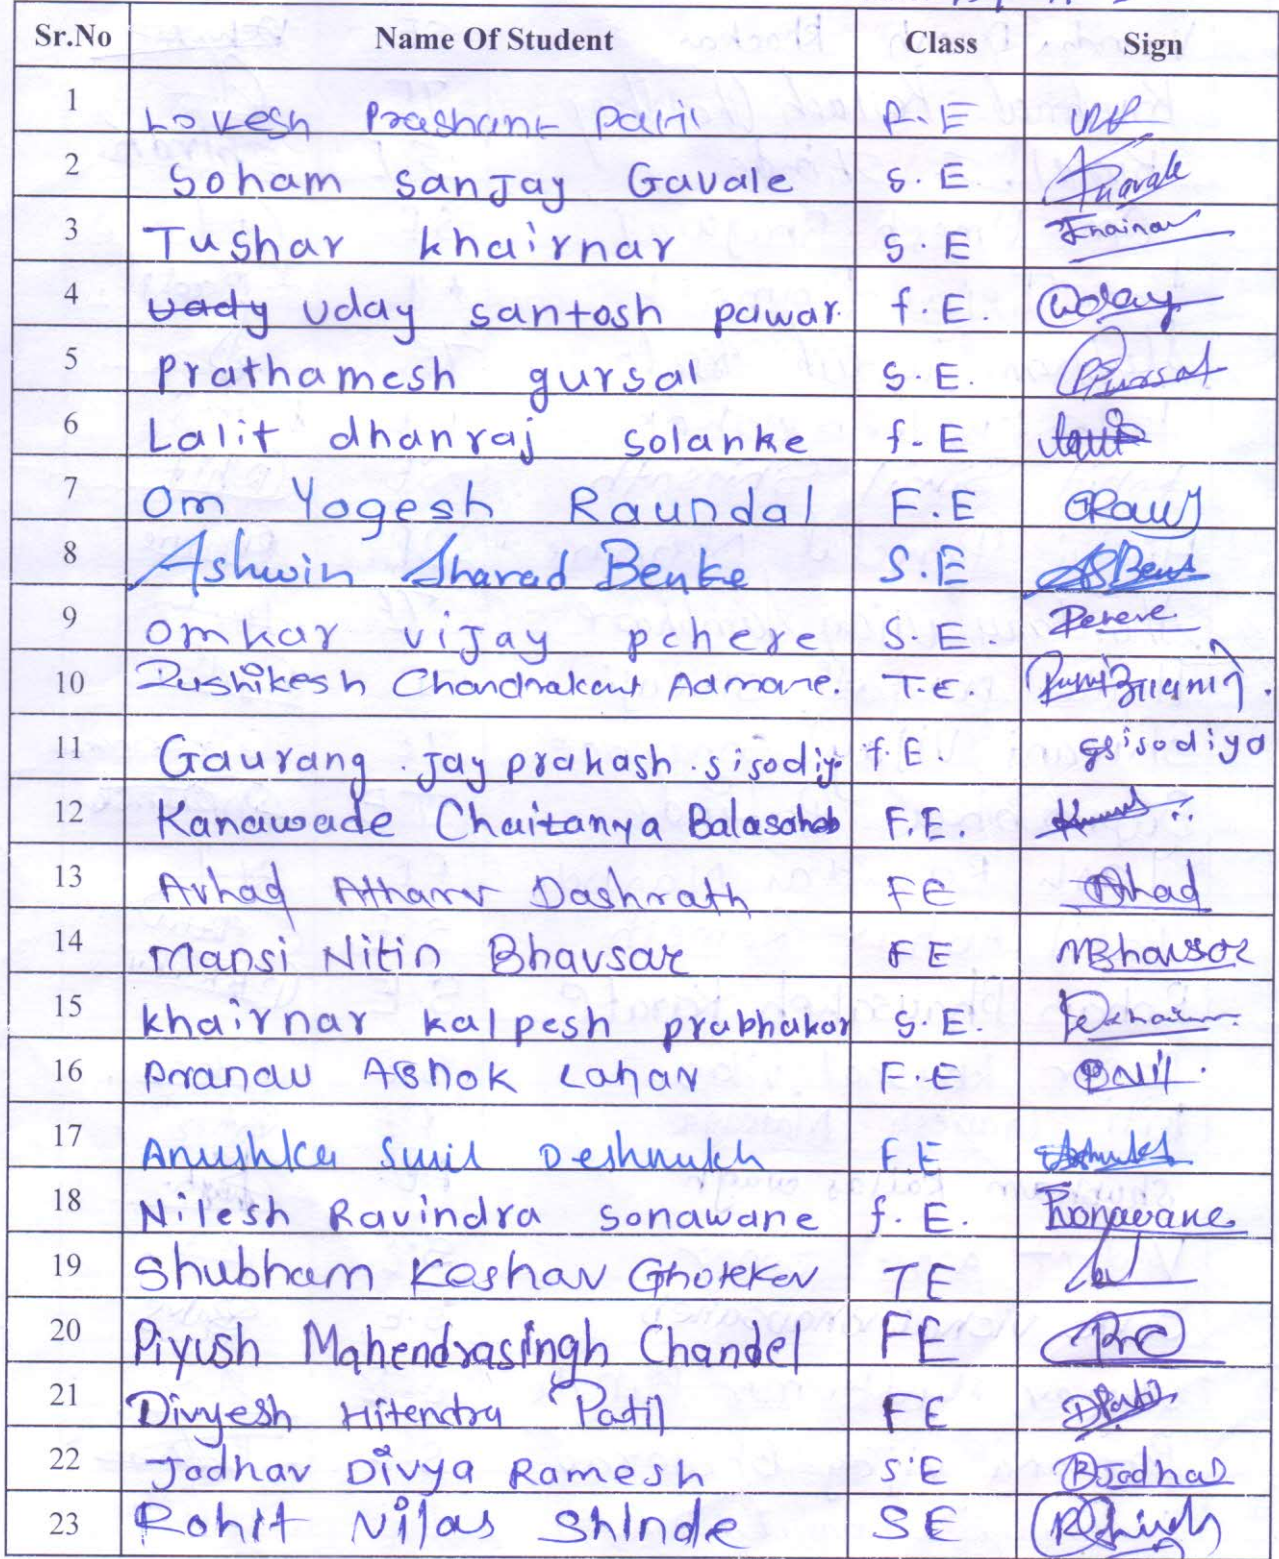 Sr.No Name Of Student Class Sign
1 Lokesh Prashant Patil F.E
2 Soham Sanjay Gavale S.E. Gavale
3 Tushar khairnar S.E Khairnar
4 Uady Uday santosh pawar. f.E. Uday
5 Prathamesh gursal S.E. Gursal
6 Lalit dhanraj solanke f-E Lalit
7 Om Yogesh Raundal F.E
8 Ashwin Sharad Benke S.E
9 omkar vijay pehere S.E. Pehere
10 Rushikesh Chandrakant Admane. T.E.
11 Gaurang . Jay prakash . sisodiy f.E. gsisodiya
12 Kanawade Chaitanya Balasaheb F.E.
13 Avhad Atharv Dashrath FE Avhad
14 Mansi Nitin Bhavsar FE MBhavsar
15 khairnar kalpesh prabhakar S.E.
16 Pranav Ashok Lahar F.E
17 Anushka Sunil Deshmukh F.E
18 Nilesh Ravindra sonawane f.E. Sonawane
19 Shubham Keshav TE
20 Piyush Mahendrasingh Chandel FE
21 Divyesh Hitendra Patil FE DPatil
22 Jadhav Divya Ramesh S.E Jadhav
23 Rohit Vilas Shinde SE